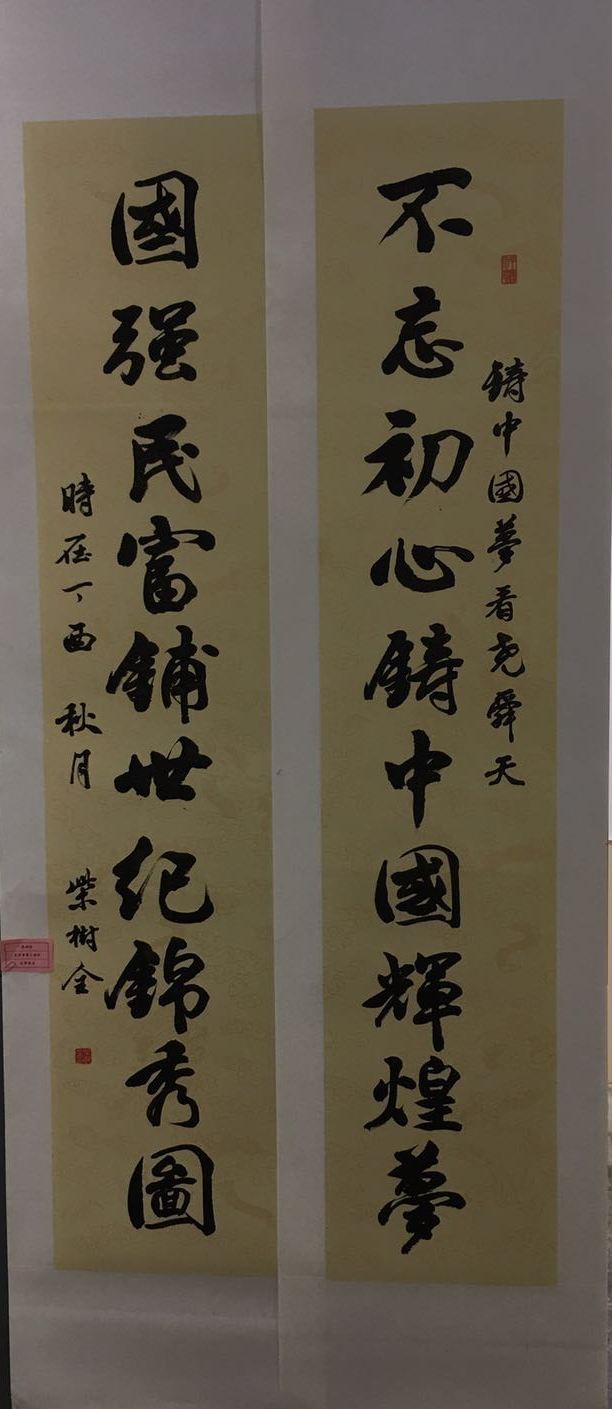 鑄中國夢看堯舜天
不忘初心鑄中國輝煌夢
國强民富鋪世纪錦秀圖
時在丁酉秋月
柴樹全